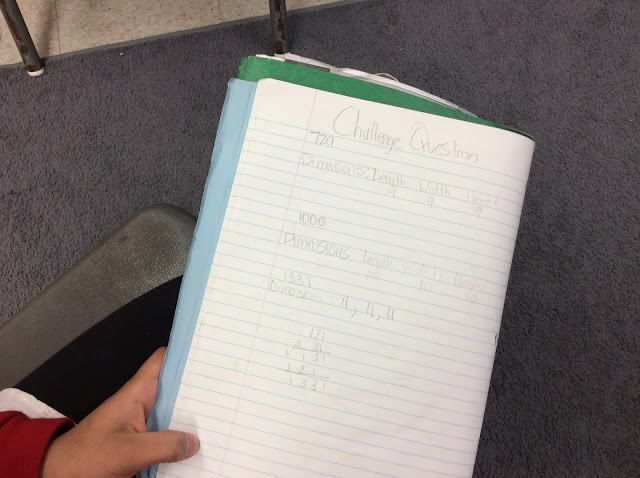 Challenge Question
729
Dimensions: Length Width Height
9 9 9
1000
Dimensions Length Width Height
10 10 10
1331
Dimensions: 11, 11, 11
121
x 11
121
121
1331